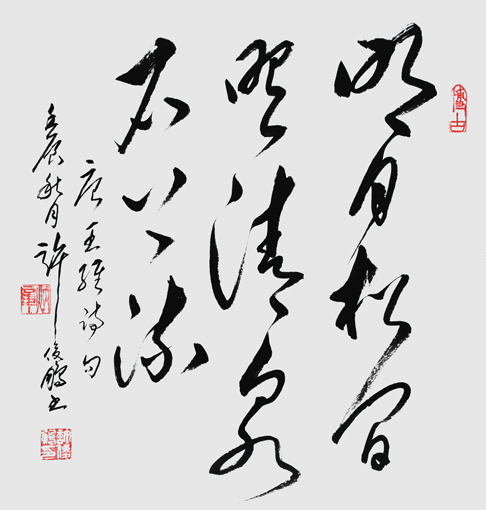 明月松间
照清泉
石上流
唐王维诗句
壬辰秋月 許俊鹏书